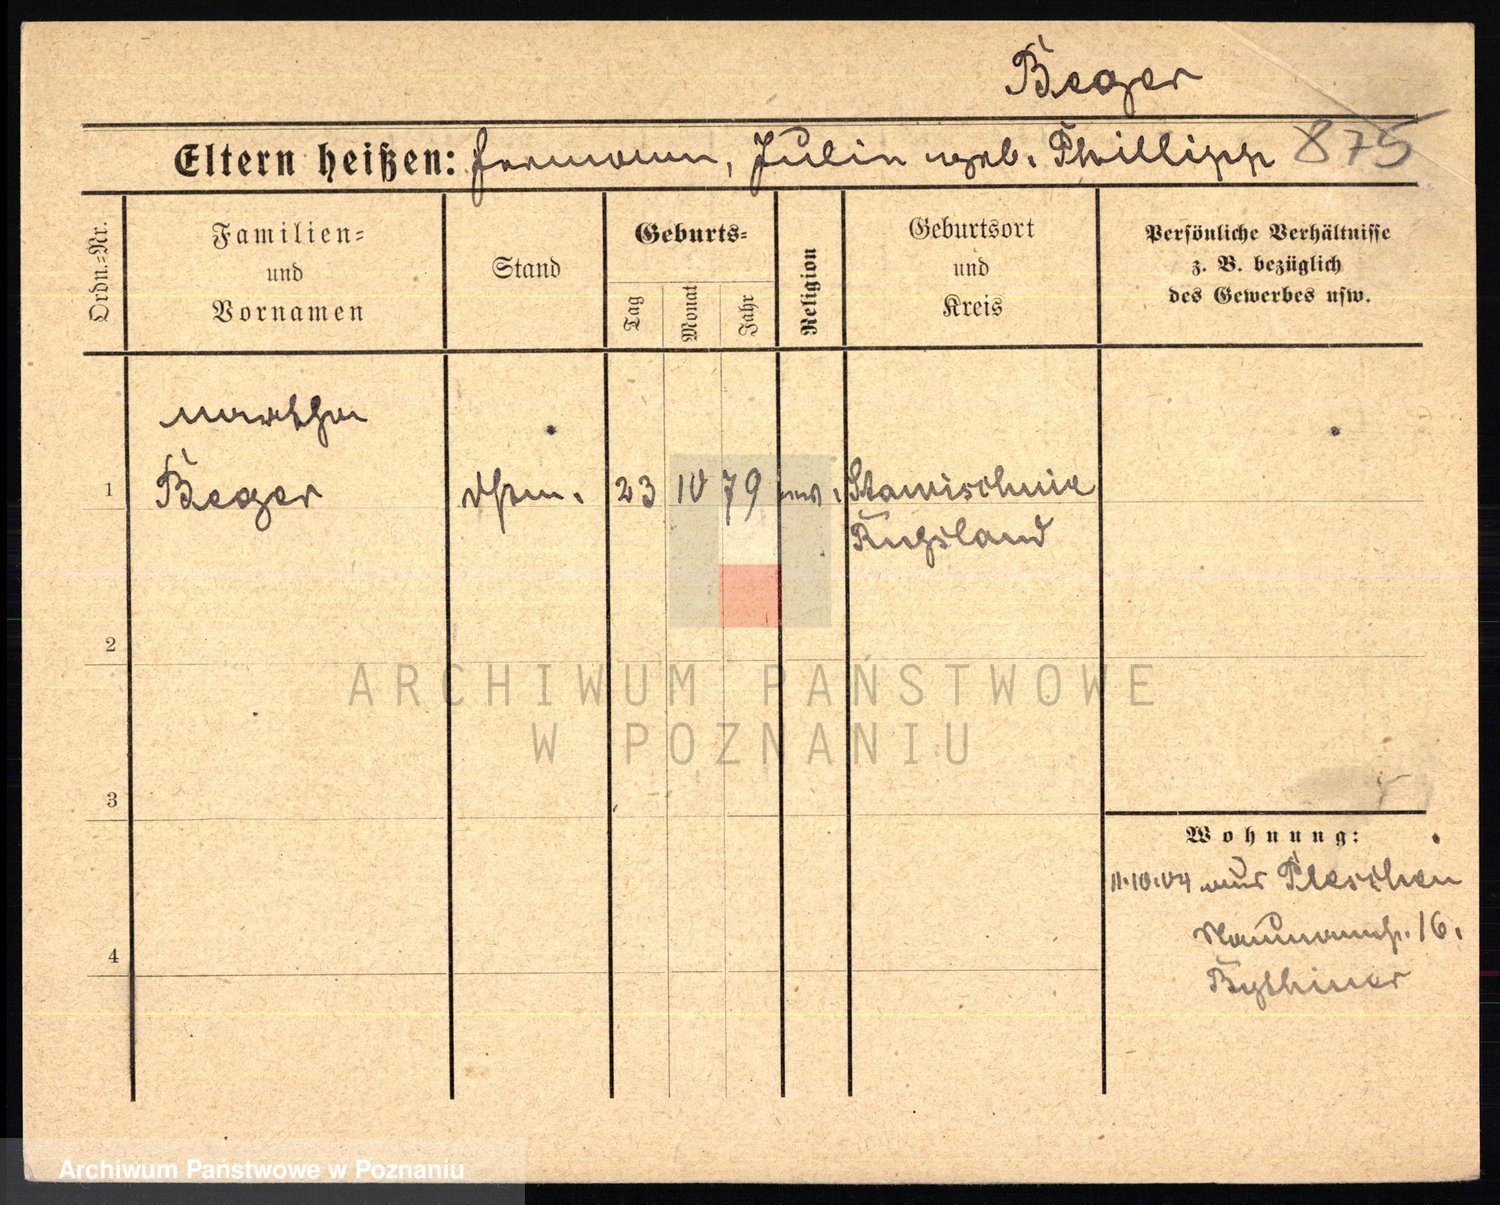 Beger
Eltern heißen: Hermann, Julie geb. Phillipp 875
Ordn.-Nr.
Familien-
und
Vornamen
Stand
Geburts-
Tag
Monat
Jahr
Religion
Geburtsort
und
Kreis
Persönliche Verhältnisse
z. B. bezüglich
des Gewerbes usw.
Martha
1 Beger 23 10 79
Rußland
2
3
4
ARCHIWUM PAŃSTWOWE
W POZNANIU
Wohnung:
11.10.04 aus Pleschen
Naumannstr. 16.
Bythiner
Archiwum Państwowe w Poznaniu